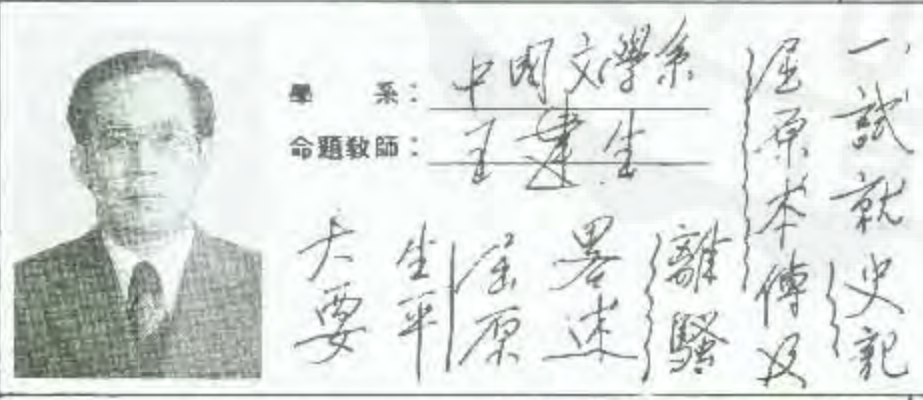 學 系：中國文學系
命題教師：王建生
一、試就史記
屈原本傳及
離騷
畧述
屈原
生平
大要